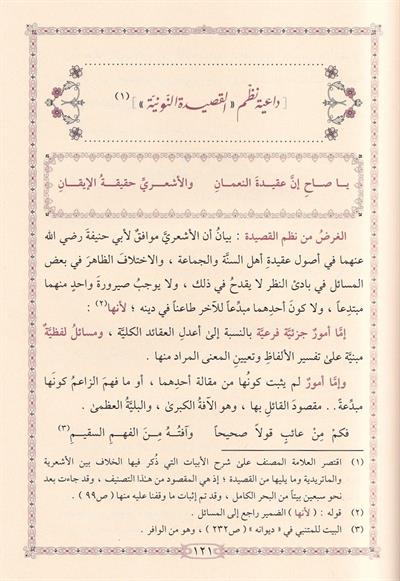 [داعية نظم «القصيدة النونية»] (١)
يا صاحِ إنَّ عقيدةَ النعمانِ والأشعريِّ حقيقةُ الإيقانِ
الغرضُ من نظم القصيدة : بيانُ أن الأشعريَّ موافقٌ لأبي حنيفةَ رضي الله
عنهما في أصول عقيدةِ أهل السنَّة والجماعة ، والاختلاف الظاهرَ في بعض
المسائل في بادئ النظر لا يقدحُ في ذلك ، ولا يوجبُ صيرورةَ واحدٍ منهما
مبتدِعاً ، ولا كونَ أحدِهما مبدِّعاً للآخر طاعناً في دينه ؛ لأنها(٢) :
إمَّا أمورٌ جزئيَّة فرعيَّة بالنسبة إلىٰ أعدلِ العقائد الكليَّة ، ومسائلُ لفظيَّةٌ
مبنيَّة علىٰ تفسير الألفاظِ وتعيينِ المعنى المراد منها .
وإمَّا أمورٌ لم يثبت كونُها من مقالة أحدِهما ، أو ما فهمَ الزاعمُ كونَها
مبدِّعةً . . مقصودَ القائل بها ، وهو الآفةُ الكبرىٰ ، والبليَّةُ العظمىٰ .
فكمْ مِنْ عائبٍ قولاً صحيحاً وآفتُهُ مِنَ الفهمِ السقيمِ(٣)
(١) اقتصر العلامة المصنف علىٰ شرح الأبيات التي ذُكر فيها الخلاف بين الأشعرية
والماتريدية وما يليها من القصيدة ؛ إذ هي المقصود من هذا التصنيف ، وقد جاءت بعد
نحو سبعين بيتاً من البحر الكامل ، وقد تم إثبات ما وقفنا عليه منها ( ص٩٩ ) .
(٢) قوله : ( لأنها ) الضمير راجع إلى المسائل .
(٣) البيت للمتنبي في « ديوانه » ( ص٢٣٢ ) ، وهو من الوافر .
١٢١